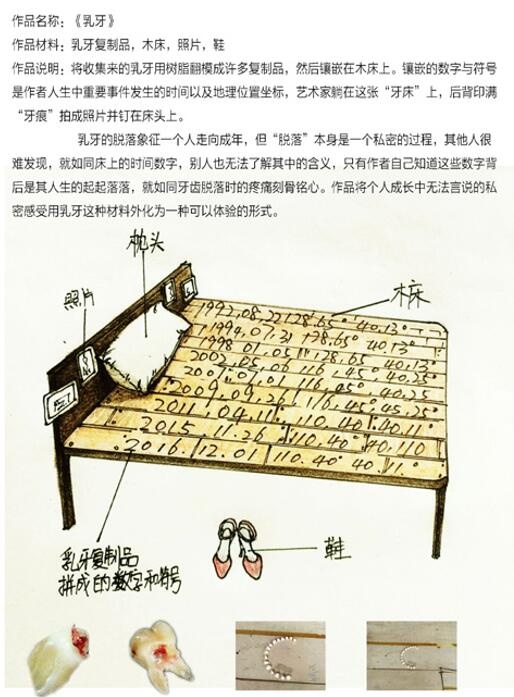 作品名称：《乳牙》
作品材料：乳牙复制品，木床，照片，鞋
作品说明：将收集来的乳牙用树脂翻模成许多复制品，然后镶嵌在木床上。镶嵌的数字与符号
是作者人生中重要事件发生的时间以及地理位置坐标，艺术家躺在这张“牙床”上，后背印满
“牙痕”拍成照片并钉在床头上。
乳牙的脱落象征一个人走向成年，但“脱落”本身是一个私密的过程，其他人很
难发现，就如同床上的时间数字，别人也无法了解其中的含义，只有作者自己知道这些数字背
后是其人生的起起落落，就如同牙齿脱落时的疼痛刻骨铭心。作品将个人成长中无法言说的私
密感受用乳牙这种材料外化为一种可以体验的形式。
枕头
照片
木床
1992.08.22 128.65° 40.13°
1994.07.31 128.65° 40.13°
1998.01.05 128.65° 40.13°
2002.05.06 116.45° 40.25°
2007.09.01 116.45° 40.25
2009.09.26 116.45° 45.25°
2011.04.11 110.40° 40.11°
2015 11.26 110.40° 40.110
2016.12.01 110.40° 40.11°
乳牙复制品
拼成的数字和符号
鞋